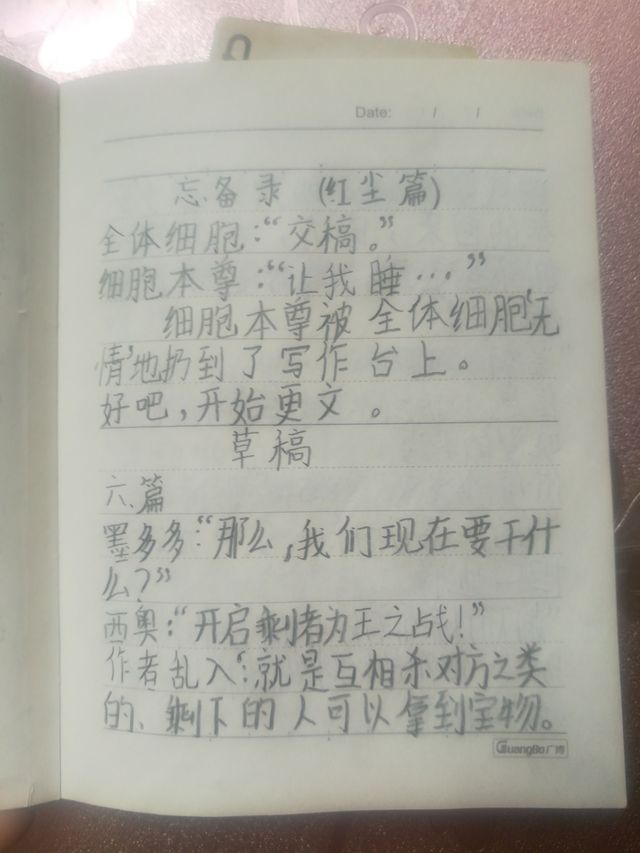 Date: / /
忘备录 (红尘篇)
全体细胞:“交稿。”
细胞本尊:“让我睡…”
细胞本尊被全体细胞‘无
情’地扔到了写作台上。
好吧,开始更文。
草稿
六、篇
墨多多:“那么,我们现在要干什
么?”
西奥:“开启剩者为王之战!”
作者乱入:就是互相杀对方之类
的、剩下的人可以拿到宝物。
GuangBo广博